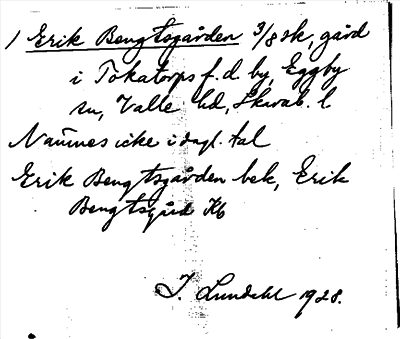 1 Erik Bengtsgården 3/8 sk, gård
i Tokatorps f.d. by, Eggby
sn, Valle hd, Skarab. l
Namnes icke i dagl. tal
Erik Bengtsgården bek, Erik
Bengtsgård Kb
I. Lundahl 1928.